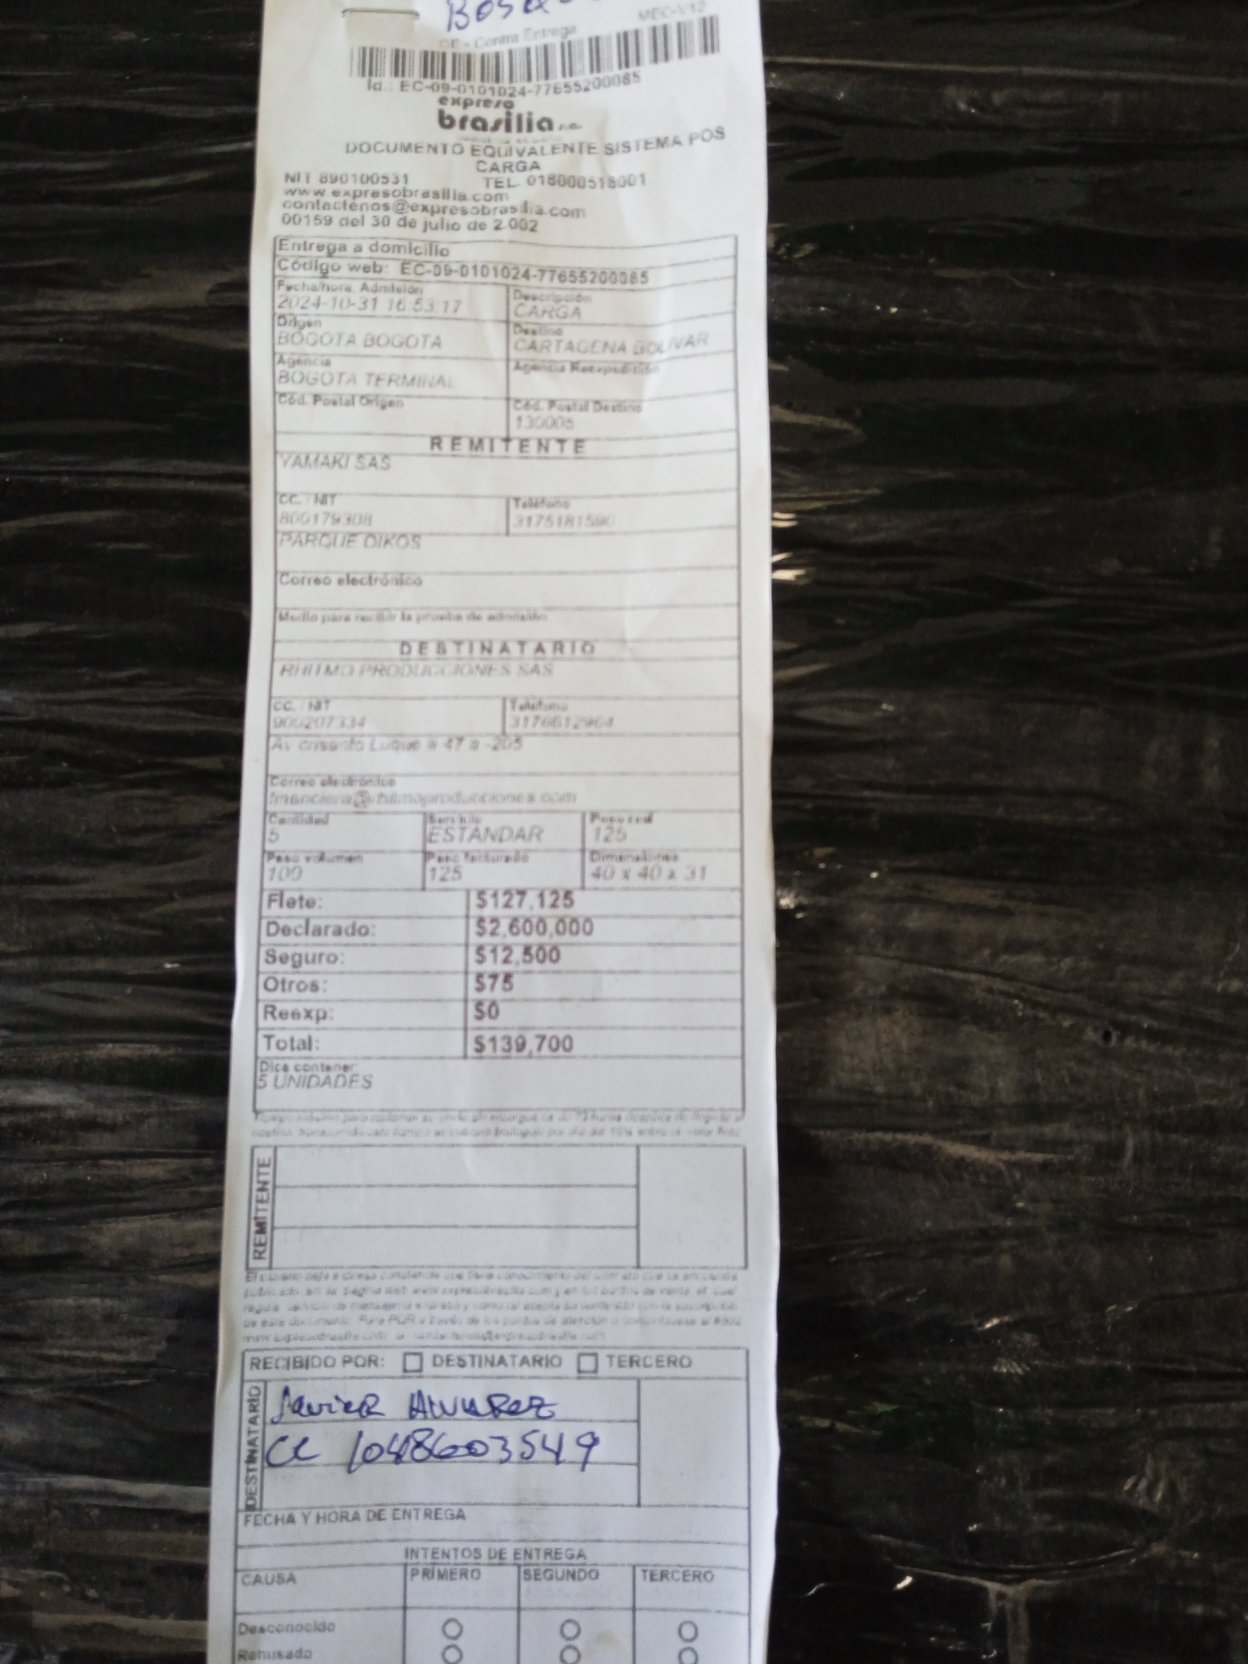 CE - Contra Entrega MEC-V12
Id.: EC-09-0101024-77655200085
expreso
brasilia s.a.
DOCUMENTO EQUIVALENTE SISTEMA POS
CARGA
NIT 890100531 TEL. 018000518001
www.expresobrasilia.com
contactenos@expresobrasilia.com
00159 del 30 de julio de 2.002
Entrega a domicilio
Código web: EC-09-0101024-77655200085
Fecha/hora Admisión Descripción
2024-10-31 16:53:17 CARGA
Origen Destino
BOGOTA BOGOTA CARTAGENA BOLIVAR
Agencia Agencia Reexpedición
BOGOTA TERMINAL
Cód. Postal Origen Cód. Postal Destino
130005
REMITENTE
YAMAKI SAS
CC. / NIT Teléfono
800179308 3175181590
PARQUE OIKOS
Correo electrónico
Medio para recibir la prueba de admisión
DESTINATARIO
RHITMO PRODUCCIONES SAS
CC. / NIT Teléfono
900207334 3176612964
Av crisanto Luque # 47 a -205
Correo electrónico
Cantidad Servicio Peso real
5 ESTANDAR 125
Peso volumen Peso facturado Dimensiones
100 125 40 x 40 x 31
Flete: $127,125
Declarado: $2,600,000
Seguro: $12,500
Otros: $75
Reexp: $0
Total: $139,700
Dice contener
5 UNIDADES
REMITENTE
RECIBIDO POR: DESTINATARIO TERCERO
DESTINATARIO
Javier Alvarez
CC 1048603549
FECHA Y HORA DE ENTREGA
INTENTOS DE ENTREGA
CAUSA PRIMERO SEGUNDO TERCERO
Desconocido
Rehusado